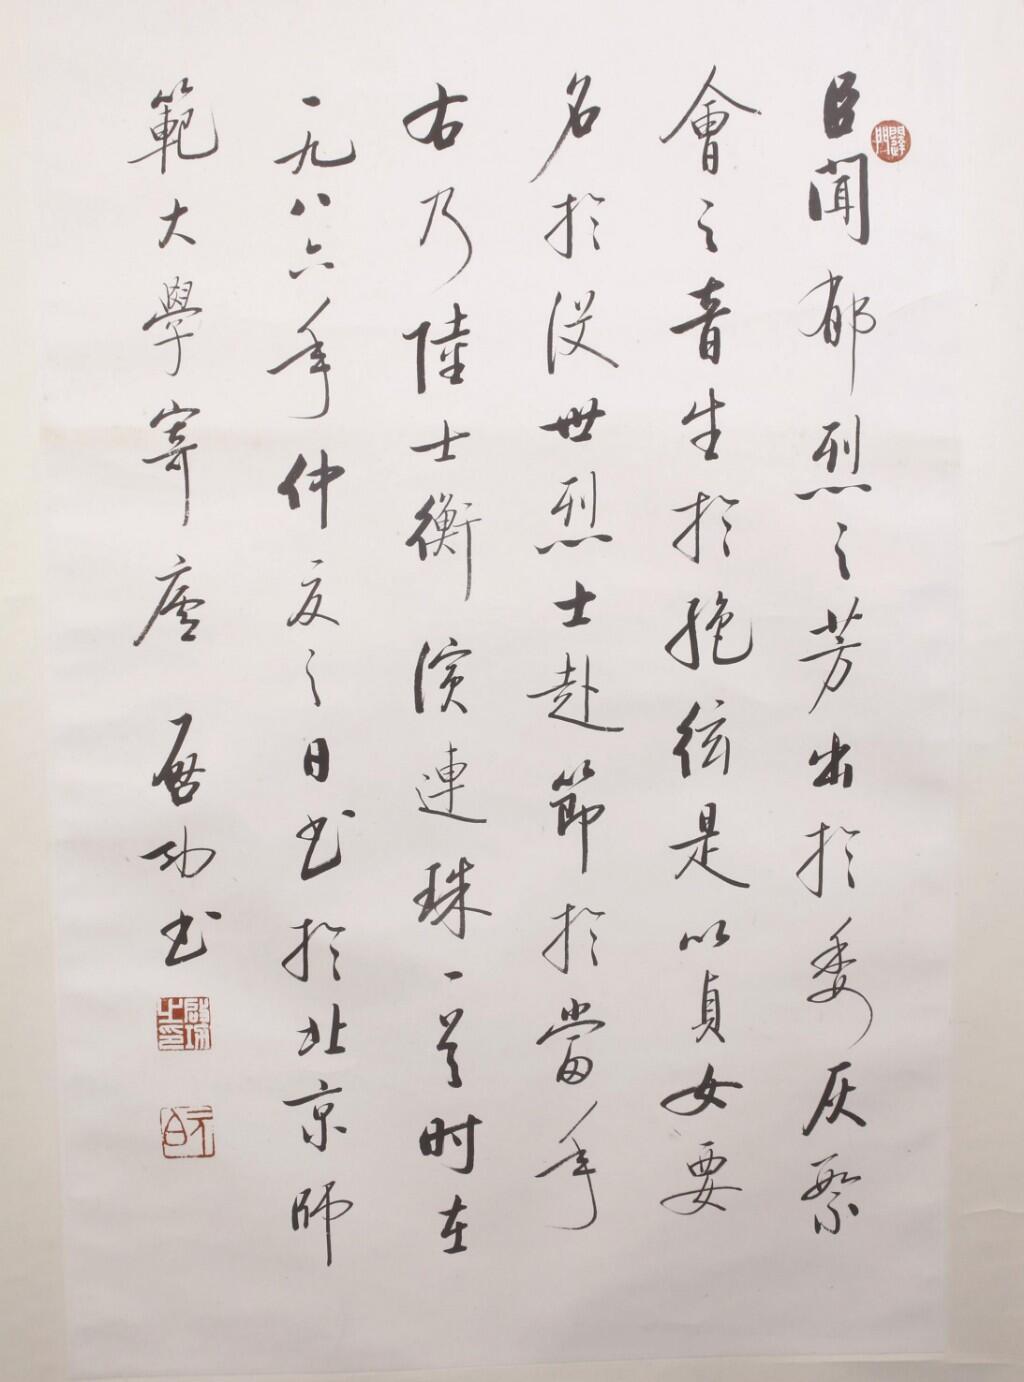 臣聞郁烈之芳出於委灰繁
會之音生於絶絃是以貞女要
名於没世烈士赴節於當年
右乃陸士衡演連珠一首时在
一九八六年仲夏之日书於北京師
範大學寄廬 启功书
啟功之印
元白